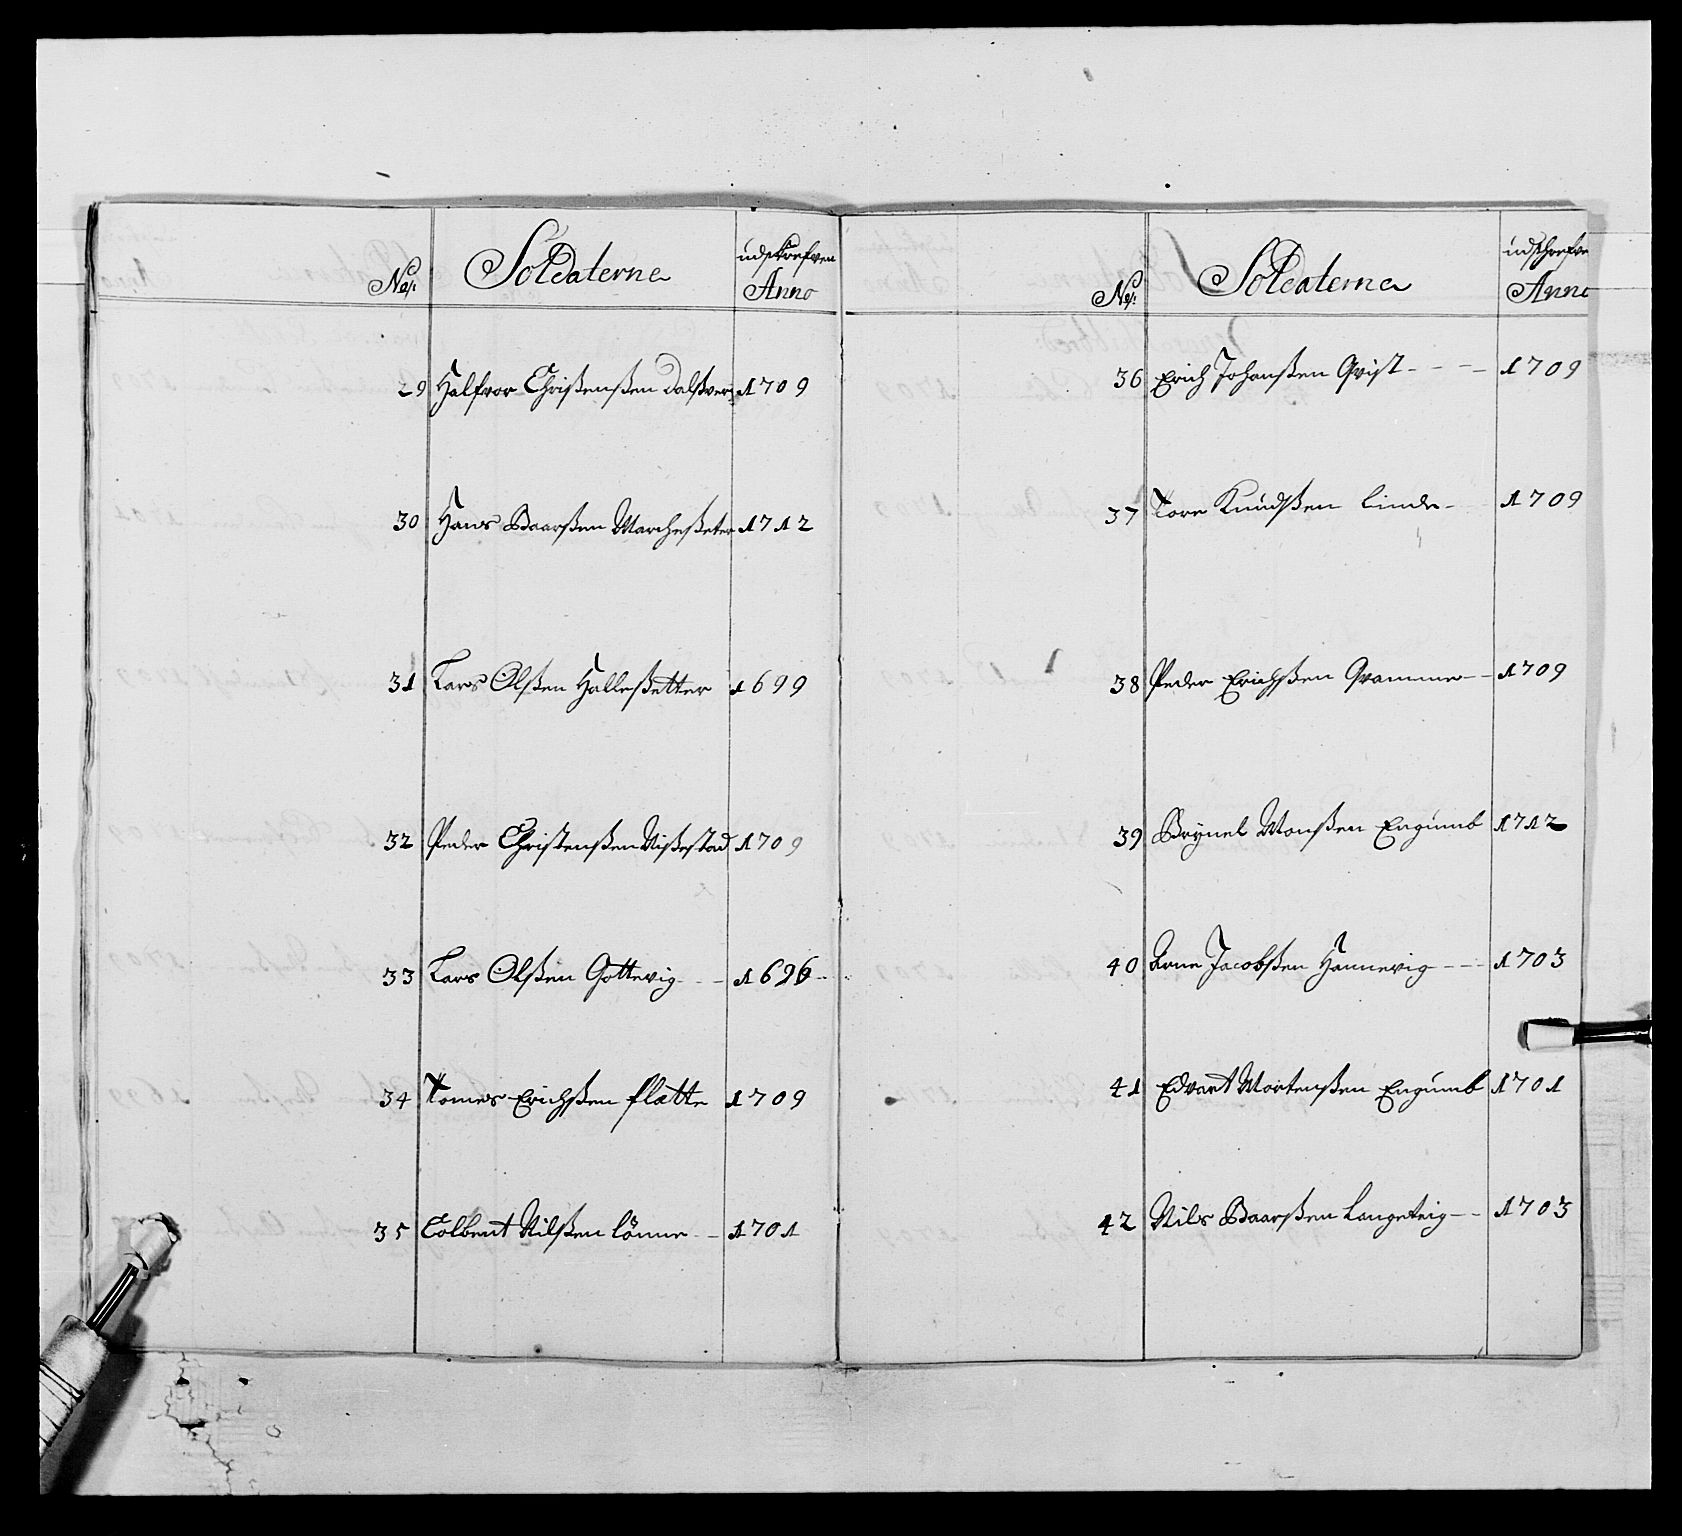 No: Soldaterne udskrefven Anno
29 Halfvor Christensen Dalsver 1709
30 Hans Baarsen Marcheseter 1712
31 Lars Olsen Hallesetter 1699
32 Peder Christensen Nissestad 1709
33 Lars Olsen Gottevig - - - 1696 -
34 Tomes Erichsen flatte 1709
35 Colbent Nilsen lönne - - 1701
No: Soldaterne udschrefve Anno
36 Erich Johansen Qvist - - - - 1709
37 Tore Knudsen Linde - 1709
38 Peder Erichsen Qvamme - - 1709
39 Brynel Monsen Engumb 1712
40 Arne Jacobsen Hannevig - - - 1703
41 Edvart Mortensen Engumb 1701
42 Nils Baarsen Langeteig - - 1703